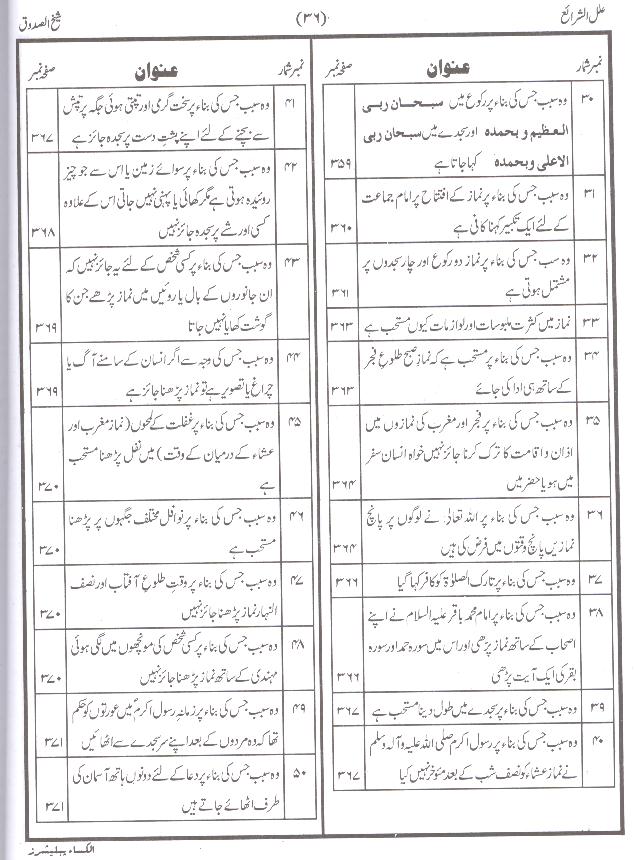 علل الشرائع
(۳۶)
شیخ الصدوق
نمبرشمار عنوان صفحہ نمبر
۳۰ وہ سبب جس کی بناء پر رکوع میں سبحان ربی
العظیم و بحمدہ اور سجدے میں سبحان ربی
الاعلی وبحمدہ کہا جاتا ہے ۳۵۹
۳۱ وہ سبب جس کی بناء پر نماز کے افتتاح پر امام جماعت
کے لئے ایک تکبیر کہنا کافی ہے ۳۶۰
۳۲ وہ سبب جس کی بناء پر نماز دو رکوع اور چار سجدوں پر
مشتمل ہوتی ہے ۳۶۱
۳۳ نماز میں کثرت ملبوسات اور لوازمات کیوں مستحب ہے ۳۶۳
۳۴ وہ سبب جس کی بناء پر مستحب ہے کہ نماز صبح طلوع فجر
کے ساتھ ہی ادا کی جائے ۳۶۳
۳۵ وہ سبب جس کی بناء پر فجر اور مغرب کی نمازوں میں
اذان و اقامت کا ترک کرنا جائز نہیں خواہ انسان سفر
میں ہو یا حضر میں ۳۶۴
۳۶ وہ سبب جس کی بناء پر اللہ تعالٰی نے لوگوں پر پانچ
نمازیں پانچ وقتوں میں فرض کی ہیں ۳۶۴
۳۷ وہ سبب جس کی بناء پر تارک الصلوٰۃ کو کافر کہا گیا ۳۶۶
۳۸ وہ سبب جس کی بناء پر امام محمد باقر علیہ السلام نے اپنے
اصحاب کے ساتھ نماز پڑھی اور اس میں سورہ حمد اور سورہ
بقر کی ایک آیت پڑھی ۳۶۶
۳۹ وہ سبب جس کی بناء پر سجدے میں طول دینا مستحب ہے ۳۶۷
۴۰ وہ سبب جس کی بناء پر رسول اکرم صلی اللہ علیہ وآلہ وسلم
نے نماز عشاء کو نصف شب کے بعد مؤخر نہیں کیا ۳۶۷
نمبرشمار عنوان صفحہ نمبر
۴۱ وہ سبب جس کی بناء پر سخت گرمی اور تپتی ہوئی جگہ پر تپش
سے بچنے کے لئے اپنے پشت دست پر سجدہ جائز ہے ۳۶۷
۴۲ وہ سبب جس کی بناء پر سوائے زمین یا اس سے جو چیز
روئیدہ ہوتی ہے مگر کھائی یا پہنی نہیں جاتی اس کے علاوہ
کسی اور شے پر سجدہ جائز نہیں ۳۶۸
۴۳ وہ سبب جس کی بناء پر کسی شخص کے لئے یہ جائز نہیں کہ
ان جانوروں کے بال یا روئیں میں نماز پڑھے جن کا
گوشت کھایا نہیں جاتا ۳۶۹
۴۴ وہ سبب جس کی وجہ سے اگر انسان کے سامنے آگ یا
چراغ یا تصویر ہے تو نماز پڑھنا جائز ہے ۳۶۹
۴۵ وہ سبب جس کی بناء پر غفلت کے لمحوں (نماز مغرب اور
عشاء کے درمیان کے وقت) میں نفل پڑھنا مستحب
ہے ۳۷۰
۴۶ وہ سبب جس کی بناء پر نوافل مختلف جگہوں پر پڑھنا
مستحب ہے ۳۷۰
۴۷ وہ سبب جس کی بناء پر وقت طلوع آفتاب اور نصف
النہار نماز پڑھنا جائز نہیں ۳۷۰
۴۸ وہ سبب جس کی بناء پر کسی شخص کی مونچھوں میں لگی ہوئی
مہندی کے ساتھ نماز پڑھنا جائز نہیں ۳۷۰
۴۹ وہ سبب جس کی بناء پر زمانہ رسول اکرمؐ میں عورتوں کو حکم
تھا کہ وہ مردوں کے بعد اپنے سر سجدے سے اٹھائیں ۳۷۱
۵۰ وہ سبب جس کی بناء پر دعا کے لئے دونوں ہاتھ آسمان کی
طرف اٹھائے جاتے ہیں ۳۷۱
الکساء پبلیشرز